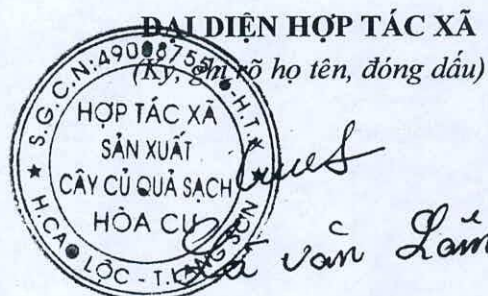 ĐẠI DIỆN HỢP TÁC XÃ
(Ký, ghi rõ họ tên, đóng dấu)
S.G.C.N:49008755 - H.T.X
HỢP TÁC XÃ
SẢN XUẤT
CÂY CỦ QUẢ SẠCH
HÒA CƯ
H.CAO LỘC - T.LẠNG SƠN
văn